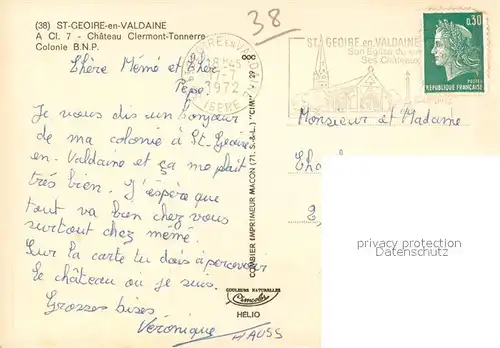 (38) ST-GEOIRE-en-VALDAINE
A Cl. 7 - Château Clermont-Tonnerre
Colonie B.N.P.
38
ST GEOIRE en VALDAINE
18H45
-7
1972
ISERE
ST-GEOIRE-en-VALDAINE
Son Eglise du
Ses Châteaux
0,30
POSTES
REPUBLIQUE FRANÇAISE
Chère Mémé et Cher
Pepé.
Je vous dis un bonjour
de ma colonie à St-Geoire-
en-Valdaine et ça me plait
très bien. J'éspère que
tout va bien chez vous
surtout chez mémé.
Sur la carte tu dois apercevoir
le château où je suis.
Grosses bises
Véronique
HAUSS
COMBIER IMPRIMEUR MACON (71, S.-&-L.) "CIM"
COULEURS NATURELLES
Cimcolor
HÉLIO
Monsieur et Madame
privacy protection
Datenschutz